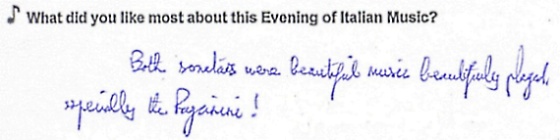 What did you like most about this Evening of Italian Music?
Both sonatas were beautiful music beautifully played,
especially the Paganini!